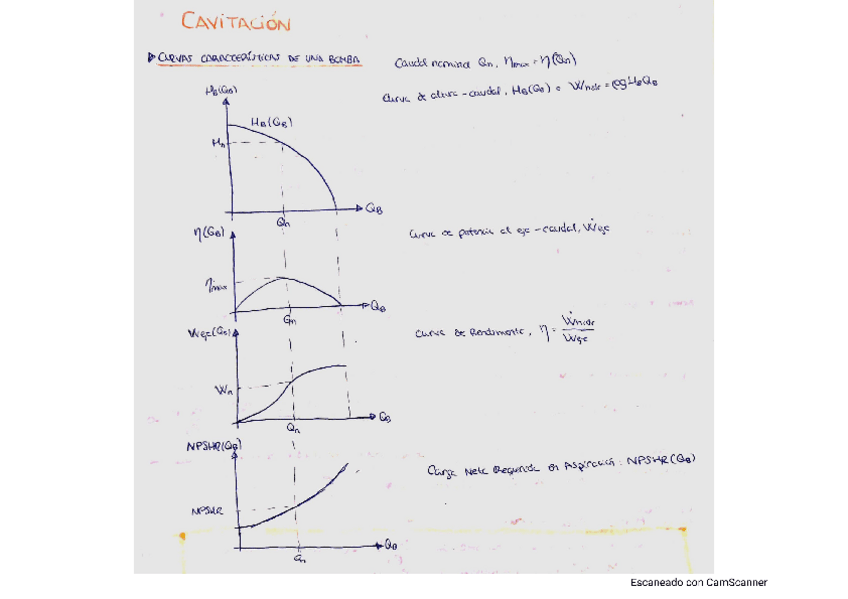 CAVITACIÓN
▶ CURVAS CARACTERÍSTICAS DE UNA BOMBA
Caudal nominal Qn, ηmax = η(Qn)
Curva de altura-caudal, HB(QB) o Ẇhidr = ρgHBQB
HB(QB)
HB(QB)
Hn
QB
Qn
η(QB)
Curva de potencia al eje-caudal, Ẇeje
ηmax
QB
Qn
Weje(QB)
Curva de Rendimiento, η = Ẇhidr / Weje
Wn
QB
Qn
NPSHR(QB)
Carga Neta Requerida en Aspiración: NPSHR(QB)
NPSHR
QB
Qn
Escaneado con CamScanner